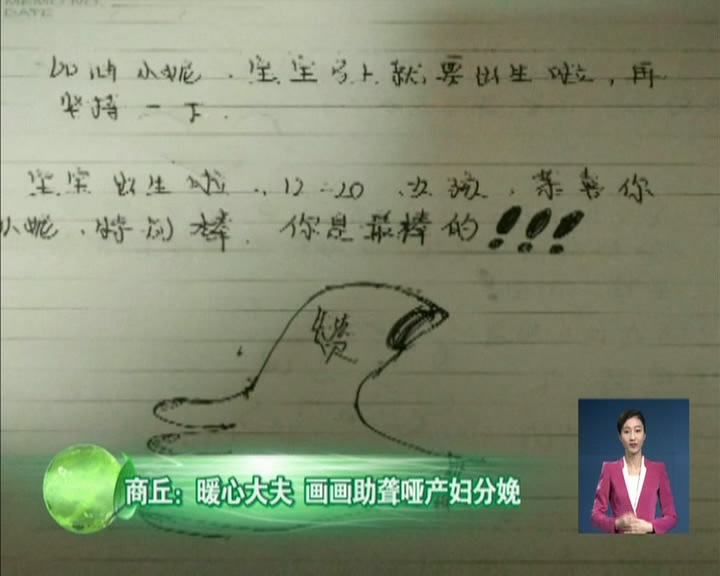 DATE
加油小妮，宝宝马上就要出生啦，再
坚持一下．
宝宝出生啦，12:20 女孩，恭喜你
小妮，特别棒．你是最棒的！！！
赞
商丘：暖心大夫 画画助聋哑产妇分娩